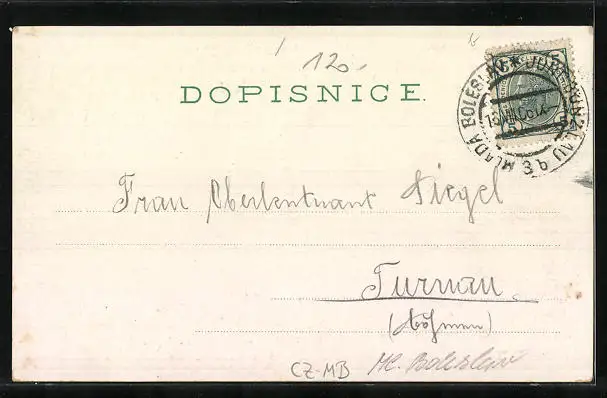 120.-
DOPISNICE.
MLADÁ BOLESLAV * JUNGBUNZLAU
5 5
Frau Oberleutnant Siegel
Turnau
(Böhmen)
CZ-MB
Ml. Boleslav